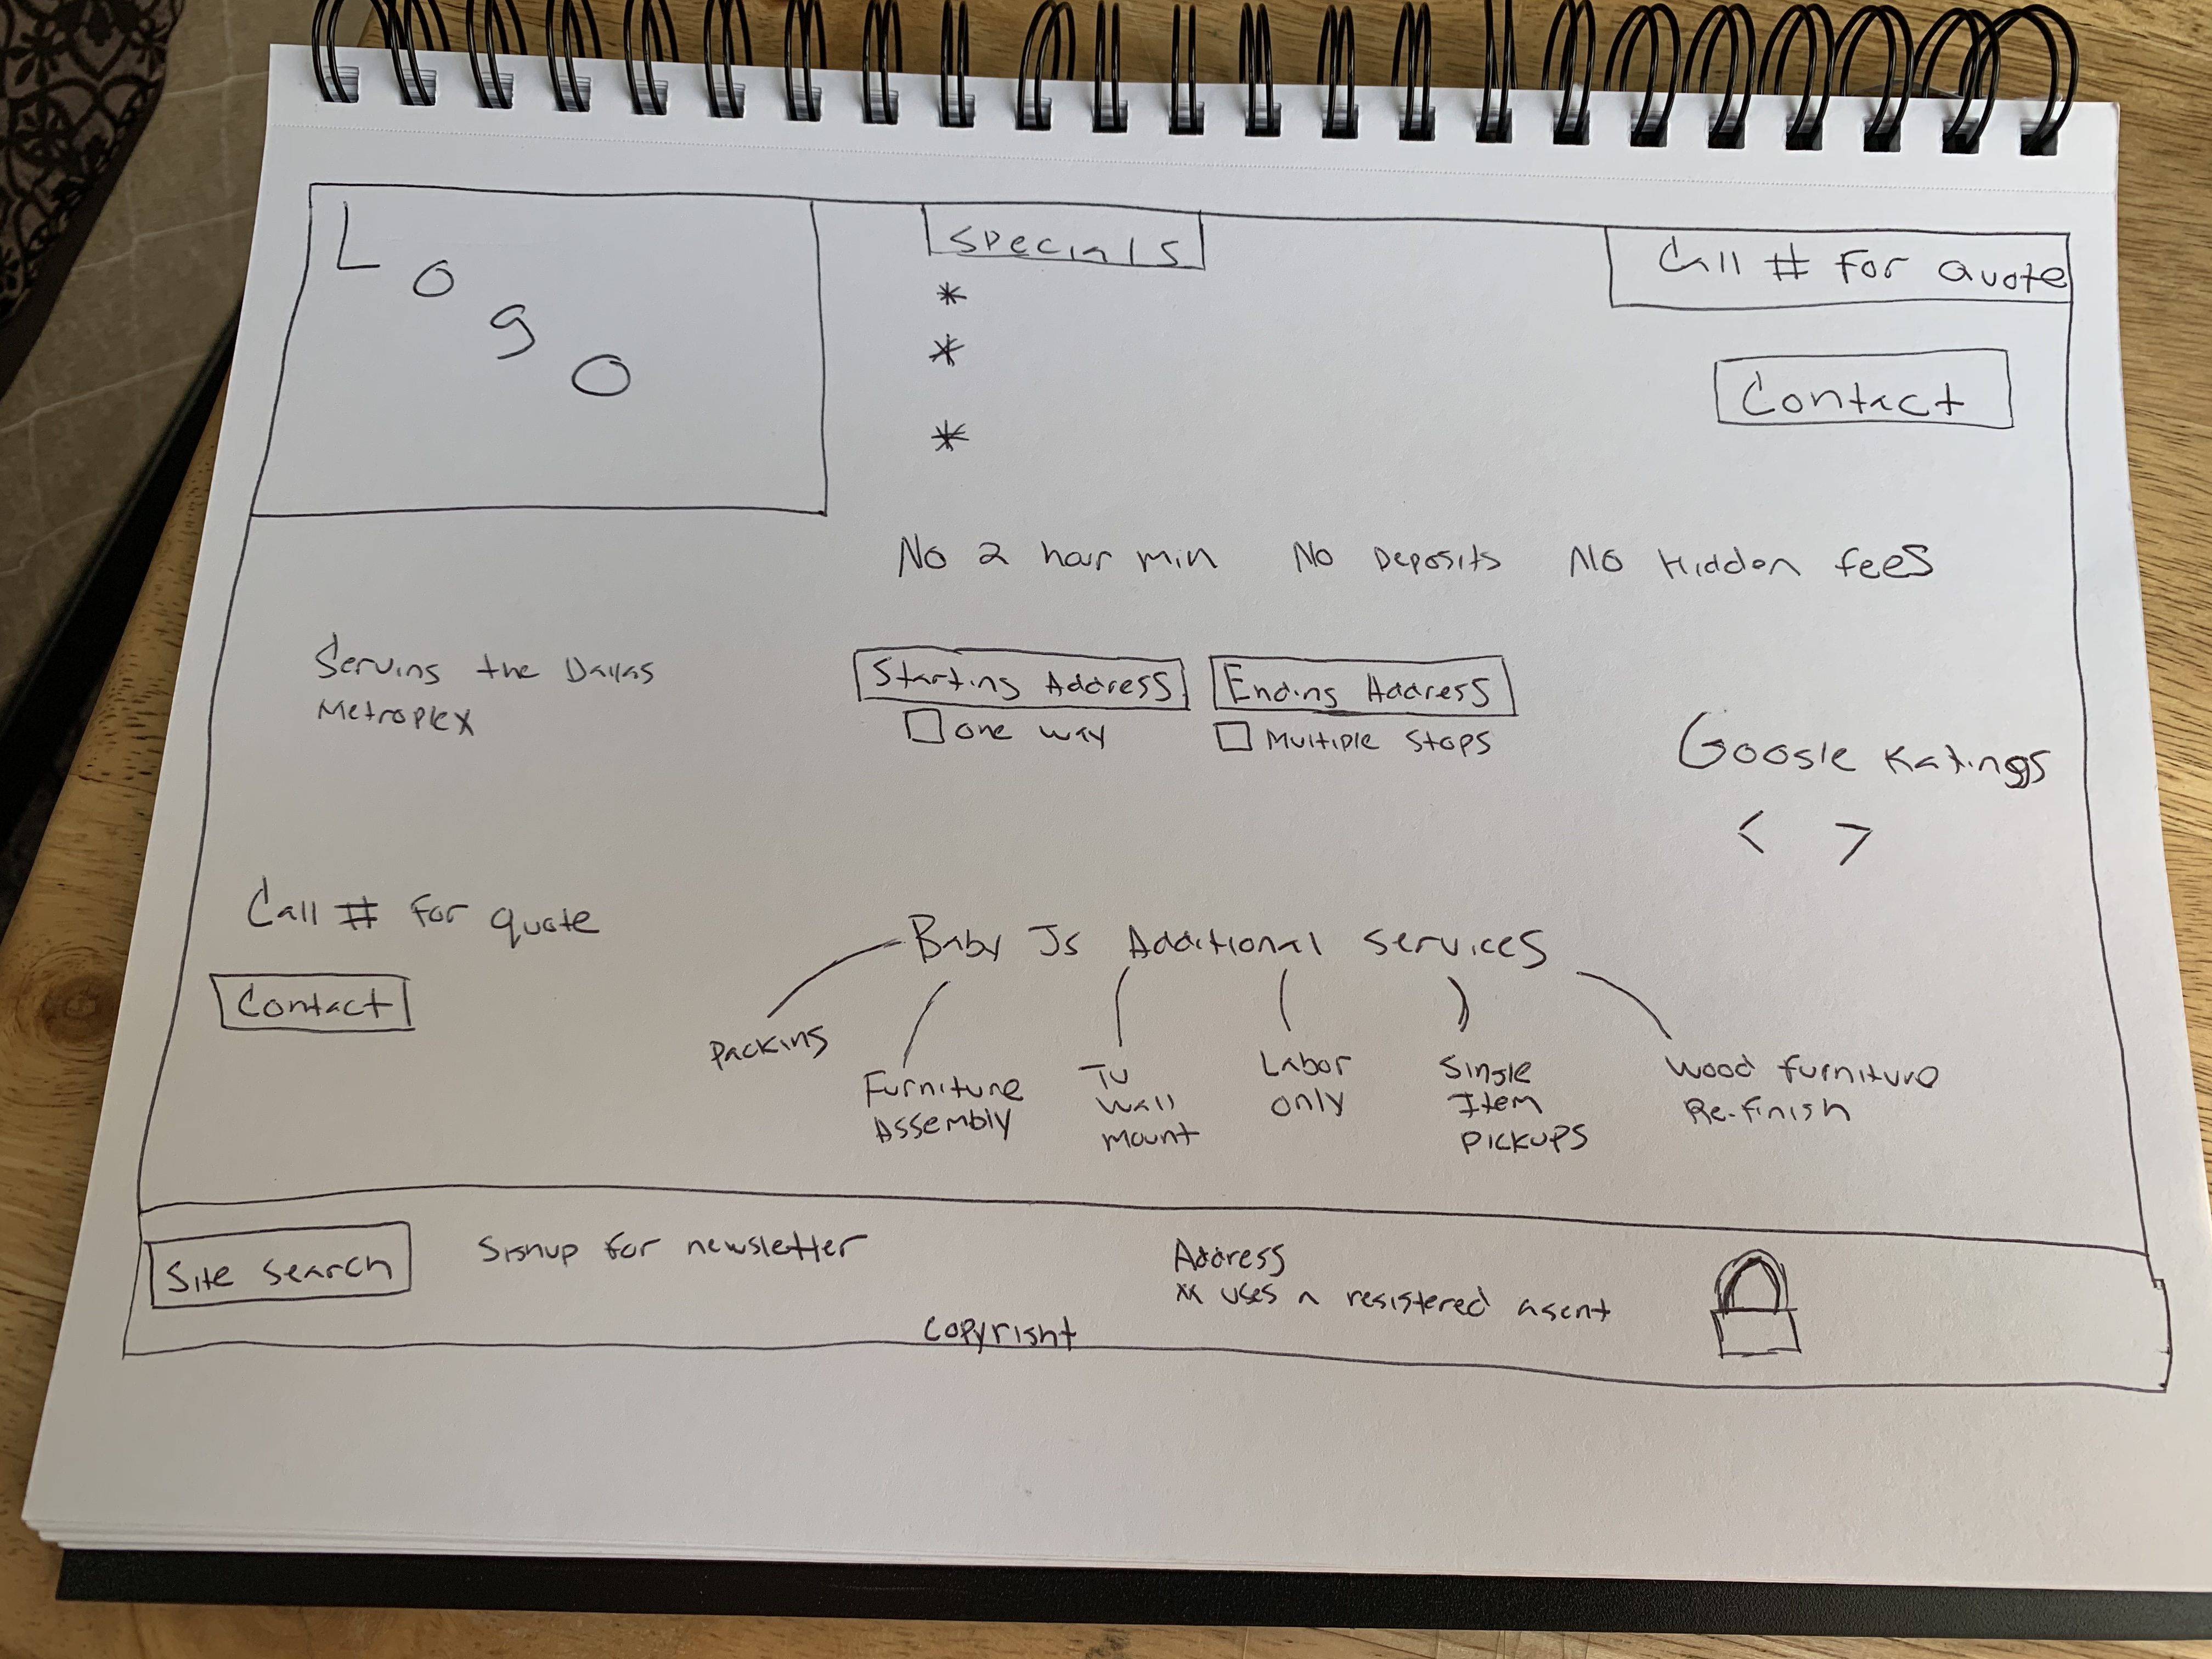 Logo
Specials
Call # for quote
*
*
*
Contact
No 2 hour min No Deposits No Hidden fees
Serving the Dallas
Metroplex
Starting Address Ending Address
One way Multiple Stops
Google Ratings
< >
Call # for quote
Contact
Baby Js Additional Services
Packing
Furniture
Assembly
TV
Wall
Mount
Labor
Only
Single
Item
Pickups
Wood furniture
Re-finish
Site Search
Signup for newsletter
Address
** uses a registered agent
Copyright